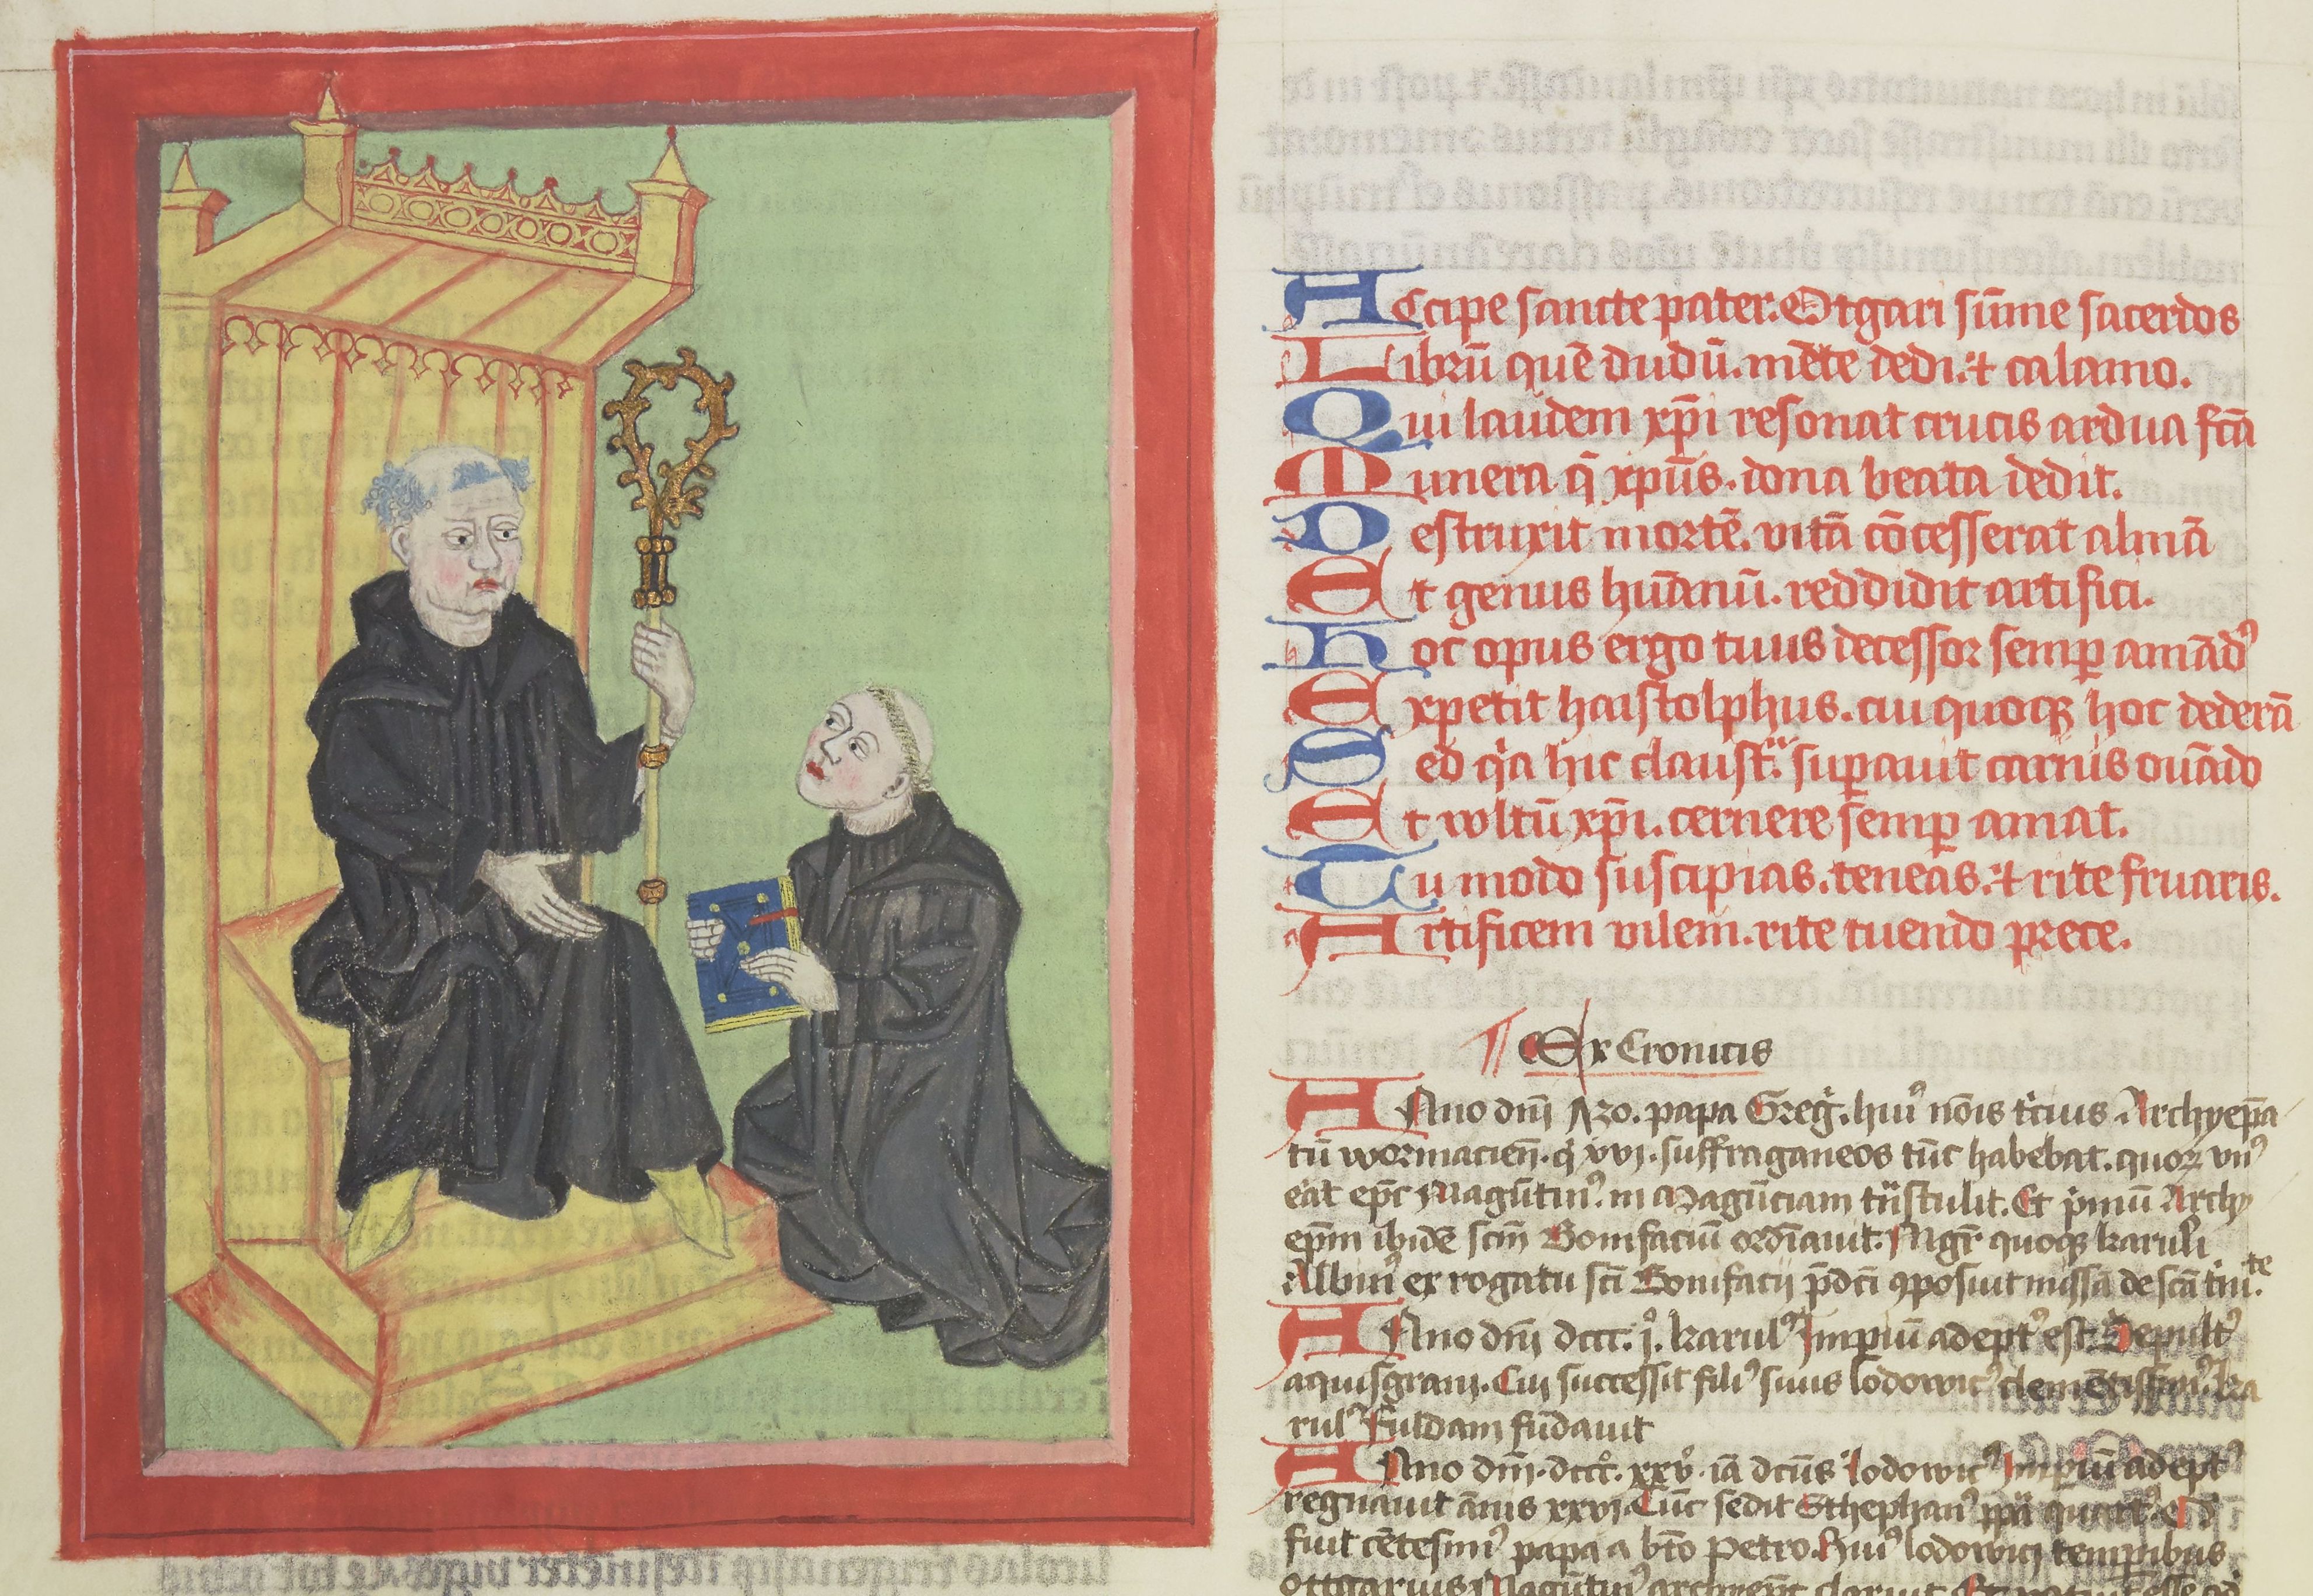 Accipe sancte pater. Otgari sūme sacerdos
Librū quē dudū. mēte dedi. ⁊ calamo.
Qui laudem xp̄i resonat crucis ardua fcā
Munera q̄ xpūs. dona beata dedit.
Destruxit mortē. vitā cōcesserat almā
Et genus hūanū. reddidit artifici.
Hoc opus ergo tuus decessor semꝑ amādꝰ
Expetit haistolphus. cui quoqꝫ hoc dederā
Sed qͥa hic claustᷓ. suꝑauit carnis ouādo
Et voltū xp̄i. cernere semꝑ amat.
Tu modo suscipias. teneas. ⁊ rite fruaris.
Artificem vilem. rite tuendo prece.
¶ Ex Cronicis
Anno dn̄i 720. papa Greg̾. huiꝰ nōis t̓cius. Archyep̄a
tū wormacien̄. q̓ xvi. suffraganeos tūc habebat. quoꝝ vnꝰ
eāt ep̄c Magūtinꝰ. in Magūciam tᷓnstulit. Et pͥmū Archy
ep̄m ibidē scm̄ Bonifaciū ordīauit. Mgr̄ quoqꝫ karuli
Albinꝰ ex rogatu sc̄i Bonifacij p̄dc̄i ꝯposuit missā de scā tͥnite.
Anno dn̄i dccc. j̊. karulꝰ Imꝑiū adeptꝰ est. Sepultꝰ
aquisgrani. Cui successit filiꝰ suus lodowicꝰ clemētissimꝰ. ka
rulꝰ Fuldam fūdauit
Anno dn̄i. dccc̊. xxv̊. iā dcūs lodowicꝰ Imꝑiū adeptꝰ
regnauit ānis xxvj. Tūc sedit Sthephanꝰ pp̄a quartꝰ.
fuit cētesimꝰ papa a bt̄o Petro. Huiꝰ lodowici temꝑibus
Ottgarius Magūtinꝰ archyep̄c claruit.